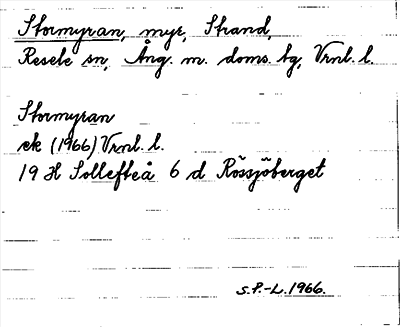 Stormyran, myr, Strand,
Resele sn, Ång. m. doms. bg, Vrnl. l.
Stormyran
ek (1966) Vrnl. l.
19 H Sollefteå 6 d Rössjöberget
S.P.-L. 1966.